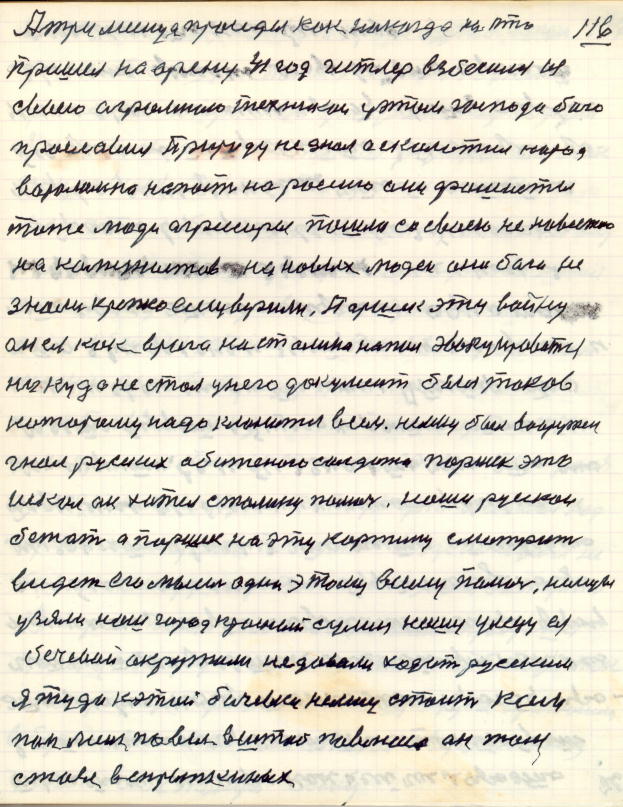 А три месица проидьот как никогда на это 116
пришел на арену 41 год гитлер взбесилса из
своею агромною техникой уэтом господа бого
прославил Природу не знал а сколотил народ
вораломна напост на росию они фашисты
тоже люди агресоры пошли са своею не новостию
на камунистов на новых людей они бога не
знали крепко ему верили. Паршек эту войну
он ея как врага на сталина напал эвокуироватця
ни куда не стал у него документ был таков
которому надо кланится всем. немец был вооружен
гнал руских обиженого солдата Паршек это
искал он хател сталину помоч. наши руския
бежат а паршек на эту картину смотрит
видет его мысля одна этому всему помоч. немцы
узяли наш город красный сулин нашу улецу ея
бечевой окружили недавали ходит руским
я туда к этой бечевки немец стоит кали
пан мене повел в штаб повожал он тощ
стоял в спрыжинах